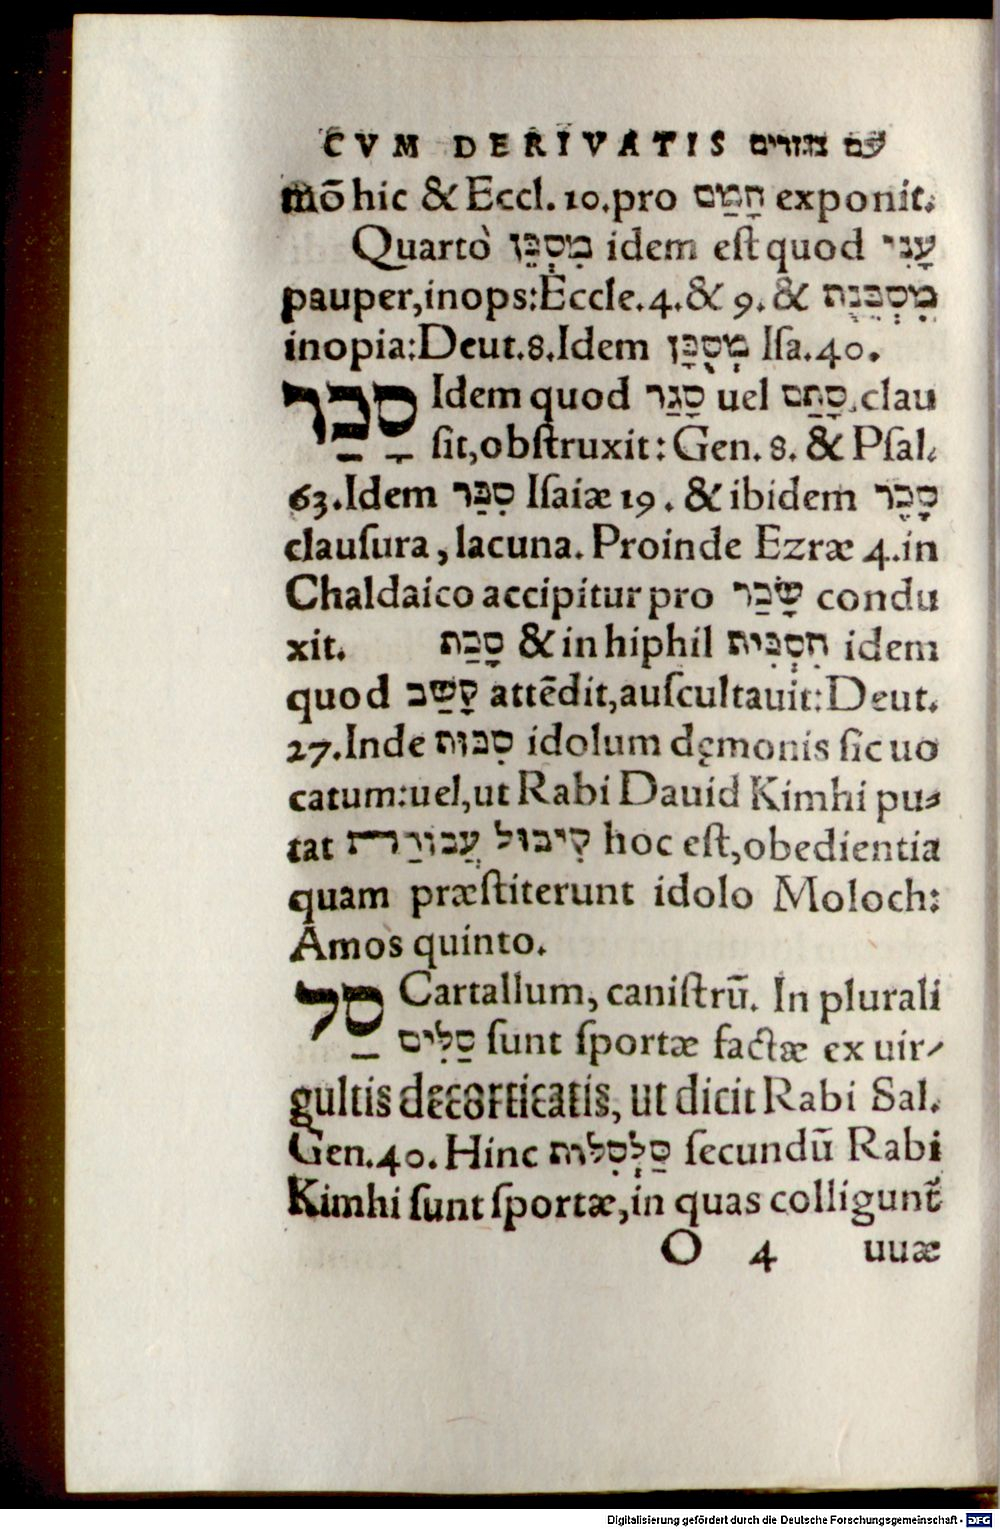 CVM DERIVATIS עם נגזרים
mō hic & Eccl. 10. pro חָמַס exponit.
Quarto מִסְכֵּן idem eſt quod עָנִי
pauper, inops: Eccle. 4. & 9. & מִסְכֵּנֻת
inopia: Deut. 8. Idem מְסֻכָּן Iſa. 40.
סָכַר Idem quod סָגַר uel סָתַם clau
ſit, obſtruxit: Gen. 8. & Pſal.
63. Idem סִכֵּר Iſaiæ 19. & ibidem סֶכֶר
clauſura, lacuna. Proinde Ezræ 4. in
Chaldaico accipitur pro שָׂכַר condu
xit. סָכַת & in hiphil הִסְכִּית idem
quod קָשַׁב attēdit, auſcultauit: Deut.
27. Inde סִכּוּת idolum dęmonis ſic uo
catum: uel, ut Rabi Dauid Kimhi pu⸗
tat קִיבּוּל עֲבוֹדַת hoc eſt, obedientia
quam præſtiterunt idolo Moloch:
Amos quinto.
סַל Cartallum, caniſtrū. In plurali
סַלִּים ſunt ſportæ factæ ex uir⸗
gultis decorticatis, ut dicit Rabi Sal.
Gen. 40. Hinc סַלְסִלּוֹת ſecundū Rabi
Kimhi ſunt ſportæ, in quas colligunt᷑
O 4 uuæ
Digitalisierung gefördert durch die Deutsche Forschungsgemeinschaft - DFG